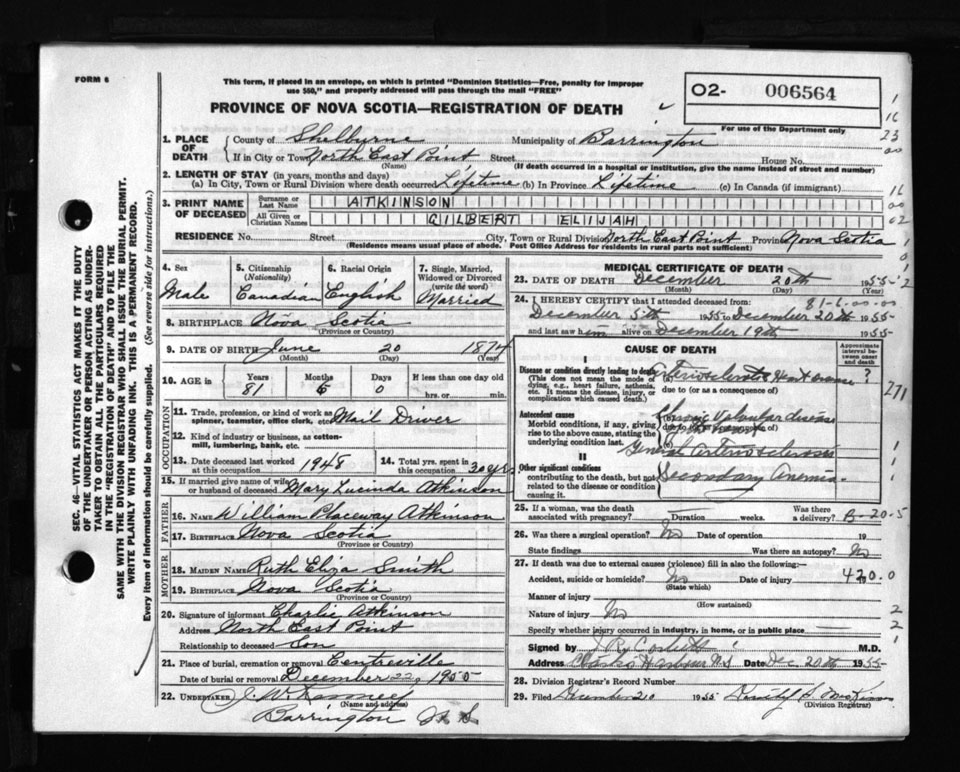 FORM 6
This form, if placed in an envelope, on which is printed "Dominion Statistics—Free, penalty for improper
use $50," and properly addressed will pass through the mail "FREE"
PROVINCE OF NOVA SCOTIA—REGISTRATION OF DEATH
O2- 006564
For use of the Department only
SEC. 46—VITAL STATISTICS ACT MAKES IT THE DUTY
OF THE UNDERTAKER OR PERSON ACTING AS UNDER-
TAKER TO OBTAIN ALL THE PARTICULARS REQUIRED
IN THE "REGISTRATION OF DEATH" AND TO FILE THE
SAME WITH THE DIVISION REGISTRAR WHO SHALL ISSUE THE BURIAL PERMIT.
WRITE PLAINLY WITH UNFADING INK. THIS IS A PERMANENT RECORD.
Every item of information should be carefully supplied. (See reverse side for instructions.)
1. PLACE OF DEATH
County of Shelburne Municipality of Barrington
If in City or Town North East Point Street House No.
(Name) (If death occurred in a hospital or institution, give the name instead of street and number)
2. LENGTH OF STAY (in years, months and days)
(a) In City, Town or Rural Division where death occurred Lifetime (b) In Province Lifetime (c) In Canada (if immigrant)
3. PRINT NAME OF DECEASED
Surname or Last Name ATKINSON
All Given or Christian Names GILBERT ELIJAH
RESIDENCE No. Street City, Town or Rural Division North East Point Province Nova Scotia
(Residence means usual place of abode. Post Office Address for residents in rural parts not sufficient)
4. Sex 5. Citizenship (Nationality) 6. Racial Origin 7. Single, Married, Widowed or Divorced (write the word)
Male Canadian English Married
8. BIRTHPLACE Nova Scotia
(Province or Country)
9. DATE OF BIRTH June 20 1874
(Month) (Day) (Year)
10. AGE IN Years Months Days If less than one day old
81 6 0 hrs. or min.
OCCUPATION
11. Trade, profession, or kind of work as spinner, teamster, office clerk, etc. Mail Driver
12. Kind of industry or business, as cotton-mill, lumbering, bank, etc.
13. Date deceased last worked at this occupation 1948 14. Total yrs. spent in this occupation 30 yrs
15. If married give name of wife or husband of deceased Mary Lucinda Atkinson
FATHER
16. NAME William Placeway Atkinson
17. BIRTHPLACE Nova Scotia
(Province or Country)
MOTHER
18. MAIDEN NAME Ruth Eliza Smith
19. BIRTHPLACE Nova Scotia
(Province or Country)
20. Signature of informant Charlie Atkinson
Address North East Point
Relationship to deceased Son
21. Place of burial, cremation or removal Centreville
Date of burial or removal December 22, 1955
22. UNDERTAKER J. W.
(Name and address)
Barrington N. S.
MEDICAL CERTIFICATE OF DEATH
23. DATE OF DEATH December 20th 1955
(Month) (Day) (Year)
81-6-00-00
24. I HEREBY CERTIFY that I attended deceased from
December 5th 1955 to December 20th 1955
and last saw him alive on December 19th 1955
CAUSE OF DEATH Approximate interval between onset and death
I
Disease or condition directly leading to death
(This does not mean the mode of dying, e.g., heart failure, asthenia, etc. It means the disease, injury, or complication which caused death.)
(a) Arteriosclerotic Heart disease ?
due to (or as a consequence of)
Antecedent causes
Morbid conditions, if any, giving rise to the above cause, stating the underlying condition last.
Chronic Valvular disease
General arteriosclerosis
II
Other significant conditions
contributing to the death, but not related to the disease or condition causing it.
Secondary Anemia
25. If a woman, was the death associated with pregnancy? Duration weeks. Was there a delivery? B-20-5
26. Was there a surgical operation? No Date of operation 19
State findings Was there an autopsy? No
27. If death was due to external causes (violence) fill in also the following:—
Accident, suicide or homicide? No Date of injury 420.0
(State which)
Manner of injury
(How sustained)
Nature of injury No
Specify whether injury occurred in industry, in home, or in public place
Signed by M.D.
Address Clarks Harbour N.S Date Dec 20th 1955
28. Division Registrar's Record Number
29. Filed December 20 1955
(Division Registrar)